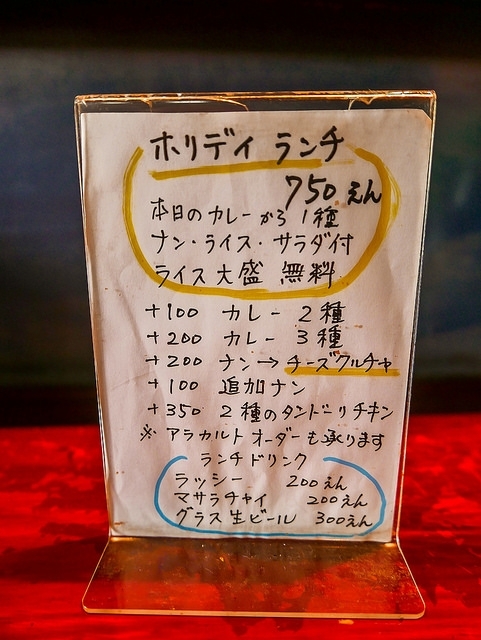 ホリデイ ランチ
750えん
本日のカレーから1種
ナン・ライス・サラダ付
ライス大盛 無料
+100 カレー 2種
+200 カレー 3種
+200 ナン→チーズクルチャ
+100 追加ナン
+350 2種のタンドーリチキン
※ アラカルトオーダーも承ります
ランチドリンク
ラッシー 200えん
マサラチャイ 200えん
グラス生ビール 300えん